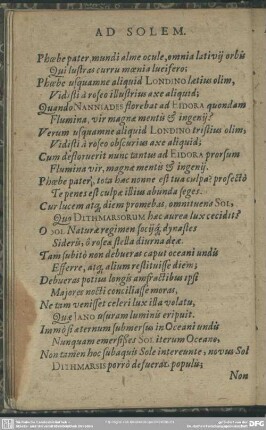 AD SOLEM.
Phœbe pater, mundi alme ocule, omnia lativij orbis
Qui lustras curru mœnia lucifero;
Phœbe usquamne aliquid LONDINO lætius olim,
Vidisti à roseo illustrius axe aliquid;
Quando NANNIADES florebat ad EIDORA quondam
Flumina, vir magnæ mentis & ingenij?
Verum usquamne aliquid LONDINO tristius olim,
Vidisti à roseo obscurius axe aliquid;
Cum defloruerit nunc tantus ad EIDORA prorsum
Flumina vir, magnæ mentis & ingenij.
Phœbe pater, tota hæc nonne est tua culpa? profectò
Te penes est culpæ illius abunda seges.
Cur lucem atq; diem promebas, omnituens SOL,
Quo DITHMARSORUM hæc aurea lux cecidit?
O SOL Naturæ regimen socijq; dynastes
Siderũ, ô roseæ stella diurna deæ.
Tam subitò non debueras caput oceani undis
Efferre, atq; alium restituisse diem;
Debueras potius longis amfractibus ipsi
Majores nocti conciliasse moras,
Ne tam venisset celeri lux illa volatu,
Quæ IANO usuram luminis eripuit.
Immò si æternum submersus in Oceani undis
Nunquam emersisses SOL iterum Oceano,
Non tamen hoc subaquis Sole intereunte, novus Sol
DITHMARSIS porrò defuerat populis;
Non